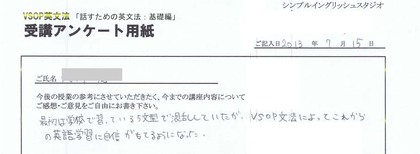 シンプルイングリッシュスタジオ
VSOP英文法「話すための英文法：基礎編」
受講アンケート用紙
ご記入日 2013 年 7 月 15 日
ご氏名
今後の授業の参考にさせていただきたく、今までの講座内容について
ご感想・ご意見をご自由にお書き下さい。
最初は学校で習っている5文型で混乱していたが、VSOP文法によってこれから
の英語学習に自信がもてるようになった。